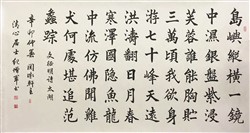 島嶼縱橫一鏡
中濕銀盤紫浸
芙蓉誰能胸貯
三萬頃我欲身
游七十峰天遠
洪濤翻日月春
寒澤國隱魚龍
中流仿佛聞雞
犬何處堪追范
蠡踪 文徵明詩太湖
辛卯仲夏
清心居士